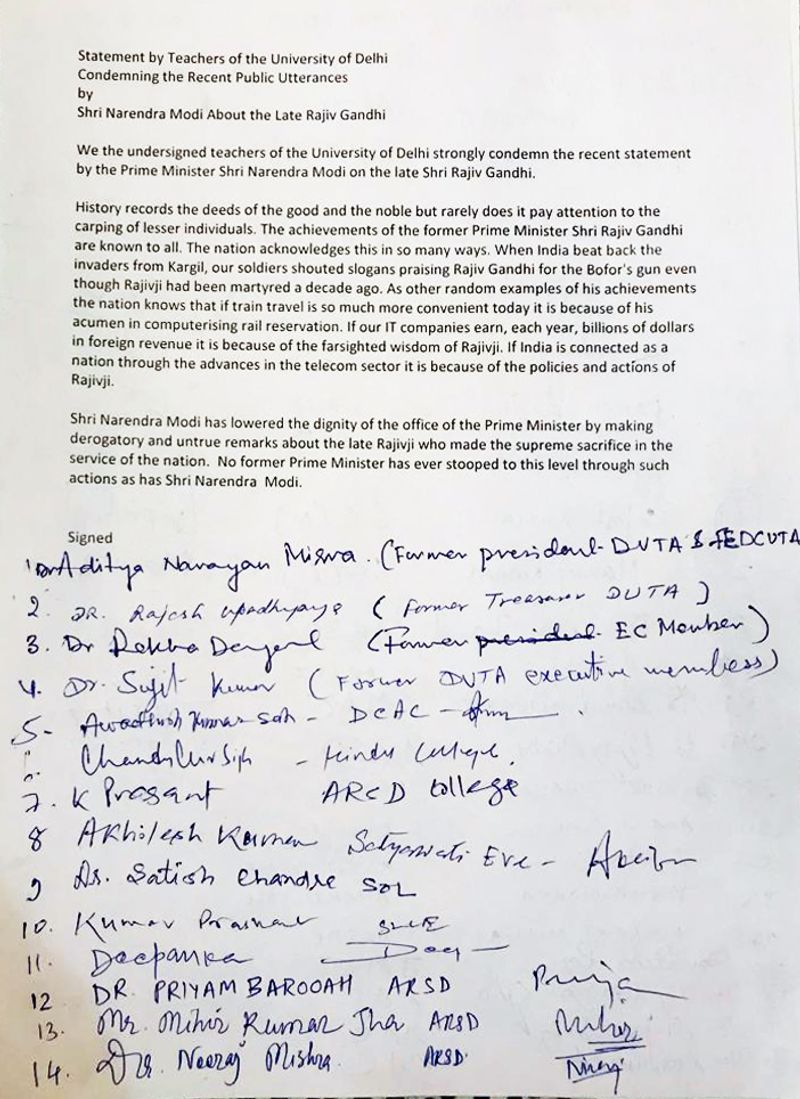 Statement by Teachers of the University of Delhi
Condemning the Recent Public Utterances
by
Shri Narendra Modi About the Late Rajiv Gandhi
We the undersigned teachers of the University of Delhi strongly condemn the recent statement
by the Prime Minister Shri Narendra Modi on the late Shri Rajiv Gandhi.
History records the deeds of the good and the noble but rarely does it pay attention to the
carping of lesser individuals. The achievements of the former Prime Minister Shri Rajiv Gandhi
are known to all. The nation acknowledges this in so many ways. When India beat back the
invaders from Kargil, our soldiers shouted slogans praising Rajiv Gandhi for the Bofor's gun even
though Rajivji had been martyred a decade ago. As other random examples of his achievements
the nation knows that if train travel is so much more convenient today it is because of his
acumen in computerising rail reservation. If our IT companies earn, each year, billions of dollars
in foreign revenue it is because of the farsighted wisdom of Rajivji. If India is connected as a
nation through the advances in the telecom sector it is because of the policies and actions of
Rajivji.
Shri Narendra Modi has lowered the dignity of the office of the Prime Minister by making
derogatory and untrue remarks about the late Rajivji who made the supreme sacrifice in the
service of the nation. No former Prime Minister has ever stooped to this level through such
actions as has Shri Narendra Modi.
Signed
1 Dr Aditya Narayan Misra. (Former president DUTA & FEDCUTA
2. DR. Rajesh Upadhyaya (Former Treasurer DUTA)
3. Dr (Former president EC Member)
4. Dr. Sujit Kumar (Former DUTA executive members)
5- Kumar - DCAC -
- Hindu College.
7. K Prasant ARSD College
8 Akhilesh Kumar Satyawati Eve -
9 Dr. Satish Chandra SOL
10. Kumar Prashant
11. Deepanka
12 DR. PRIYAM BAROOAH ARSD Priya
13. Mr. Mihir Kumar Jha ARSD Mihir
14. Dr. Neeraj Mishra. ARSD. Niraj